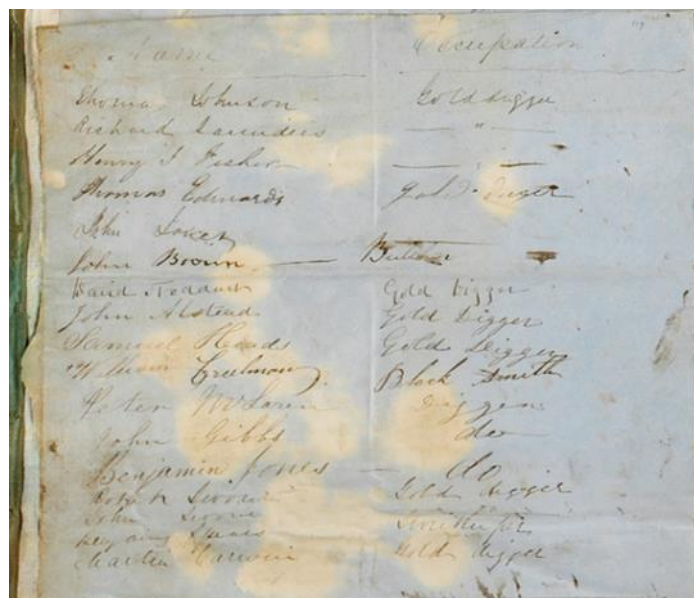 Name Occupation
Thomas Johnson Gold digger
Richard Saunders — " —
Henry J Fisher — " —
Thomas Edwards Gold diger
John
John Brown — Butcher
David Stoddart Gold Digger
John Alstead Gold Digger
Samuel Hinds Gold Digger
William Creelman Black Smith
Peter McLaren Digger
John Gibbs do
Benjamin Jones — do
Robert Gold digger
John
Charles Gold digger